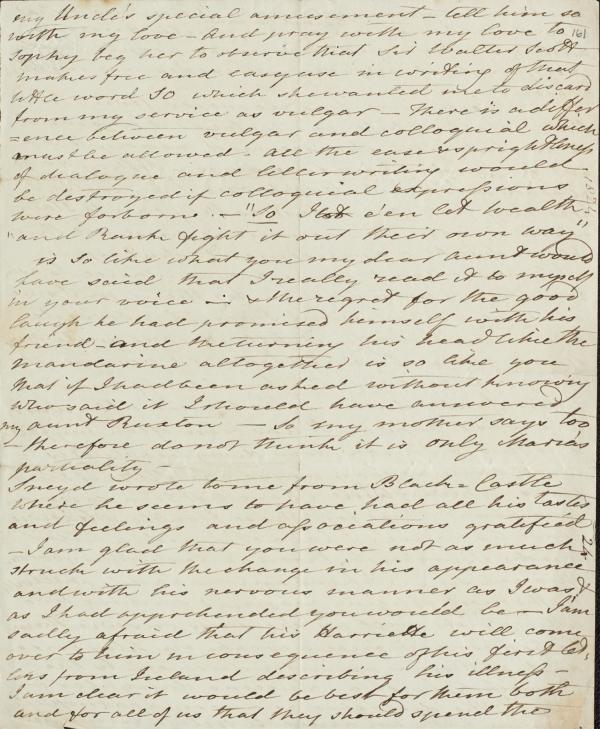 my Uncle's special amusement - tell him so
with my love - And pray with my love to 161
Sophy beg her to observe that Sir Walter Scott
makes free and easy use in writing of that
little word SO which she wanted me to discard
from my service as vulgar - There is a differ
=ence between vulgar and colloquial which
must be allowed - All the ease & sprightliness
of dialogue and letter writing would
be destroyed if colloquial expressions
were forborne. - "So I let e'en let Wealth
"and Rank fight it out their own way"
is so like what you my dear aunt would
have said that I really read it to myself
in your voice - & the regret for the good
laugh he had promised himself with his
friend - and the turning his head like the
mandarine altogether is so like you
that if I had been asked without knowing
who said it I should have answered
my aunt Ruxton - So my mother says too
- therefore do not think it is only Maria's
partiality -
Sneyd wrote to me from Black-Castle
where he seems to have had all his tastes
and feelings and associations gratified
- I am glad that you were not as much
struck with the change in his appearance
and with his nervous manner as I was &
as I had apprehended you would be - I am
sadly afraid that his Harriette will come
over to him in consequence of his first let
ters from Ireland describing his illness -
I am clear it would be best for them both
and for all of us that they should spend the